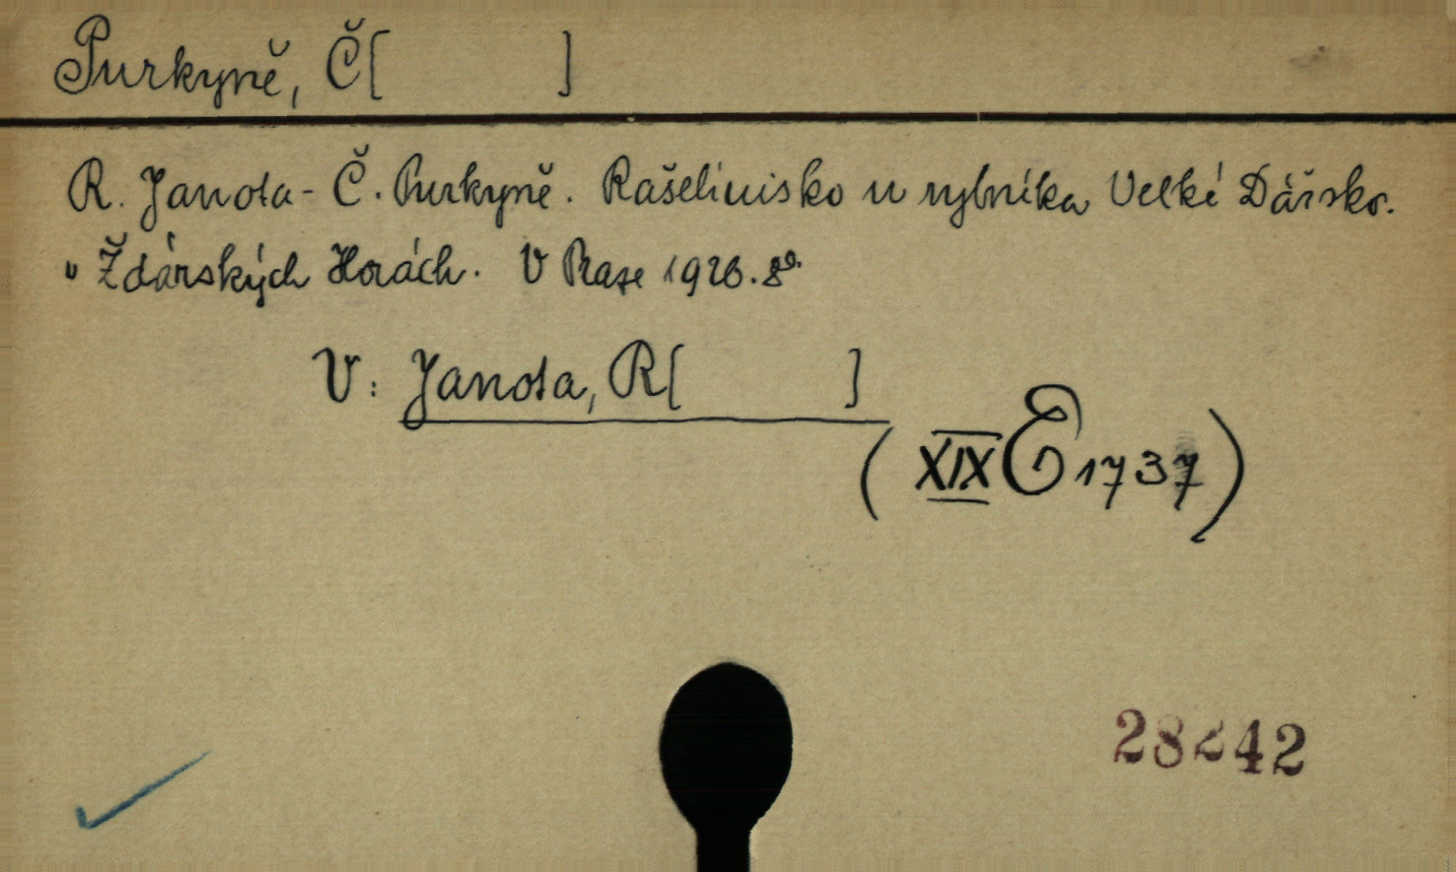 Purkyně, Č[ ]
R. Janota - Č. Purkyně. Rašelinisko u rybníka Velké Dářsko.
v Žďárských Horách. V Praze 1926. 8º.
V: Janota, R[ ]
(XIX E 1737)
28242